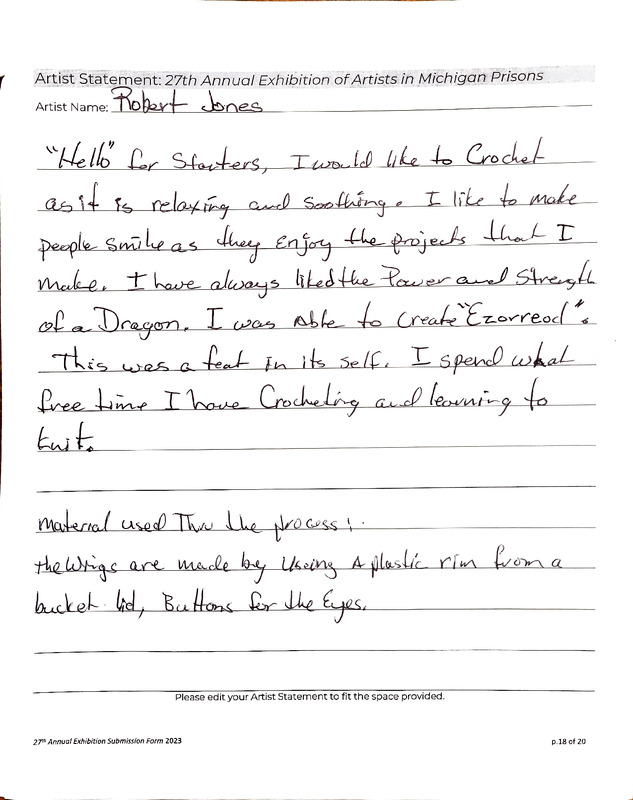 Artist Statement: 27th Annual Exhibition of Artists in Michigan Prisons
Artist Name: Robert Jones
"Hello" for Starters, I would like to Crochet
as it is relaxing and soothing. I like to make
people smile as they Enjoy the projects that I
make. I have always liked the Power and Strength
of a Dragon. I was Able to create "Ezorreod".
This was a feat in its self. I spend what
free time I have Crocheting and learning to
knit.
material used Thru the process:
the Wings are made by Useing A plastic rim from a
bucket lid, Buttons for the Eyes.
Please edit your Artist Statement to fit the space provided.
27th Annual Exhibition Submission Form 2023
p.18 of 20